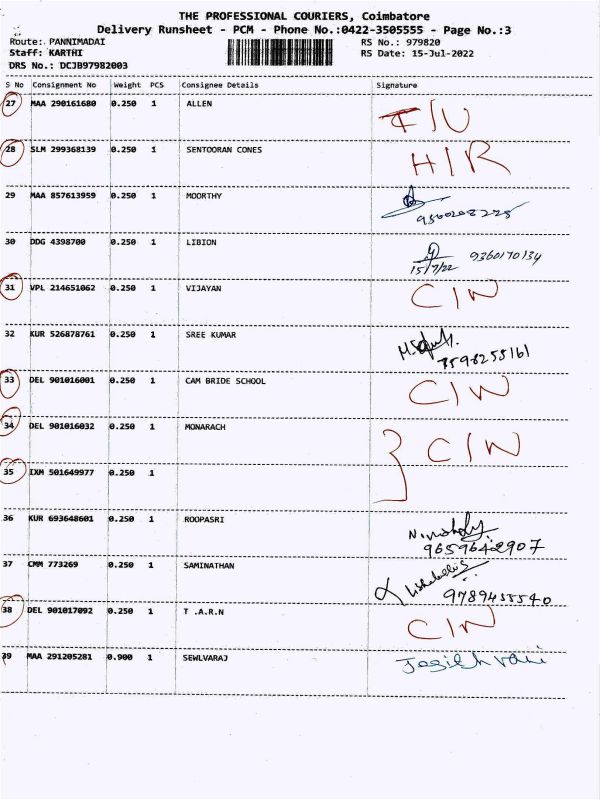 THE PROFESSIONAL COURIERS, Coimbatore
Delivery Runsheet - PCM - Phone No.:0422-3505555 - Page No.:3
Route: PANNIMADAI RS No.: 979820
Staff: KARTHI RS Date: 15-Jul-2022
DRS No.: DCJB97982003
S No Consignment No Weight PCS Consignee Details Signature
27 MAA 290161680 0.250 1 ALLEN
28 SLM 299368139 0.250 1 SENTOORAN CONES H/R
29 MAA 857613959 0.250 1 MOORTHY
30 DDG 4398700 0.250 1 LIBION 9360170134
15/7/22
31 VPL 214651062 0.250 1 VIJAYAN C/N
32 KUR 526878761 0.250 1 SREE KUMAR
7598255161
33 DEL 901016001 0.250 1 CAM BRIDE SCHOOL C/N
34 DEL 901016032 0.250 1 MONARACH C/N
35 IXM 501649977 0.250 1
36 KUR 693648601 0.250 1 ROOPASRI
9659642907
37 CMM 773269 0.250 1 SAMINATHAN
38 DEL 901017092 0.250 1 T .A.R.N C/N
39 MAA 291205281 0.900 1 SEWLVARAJ